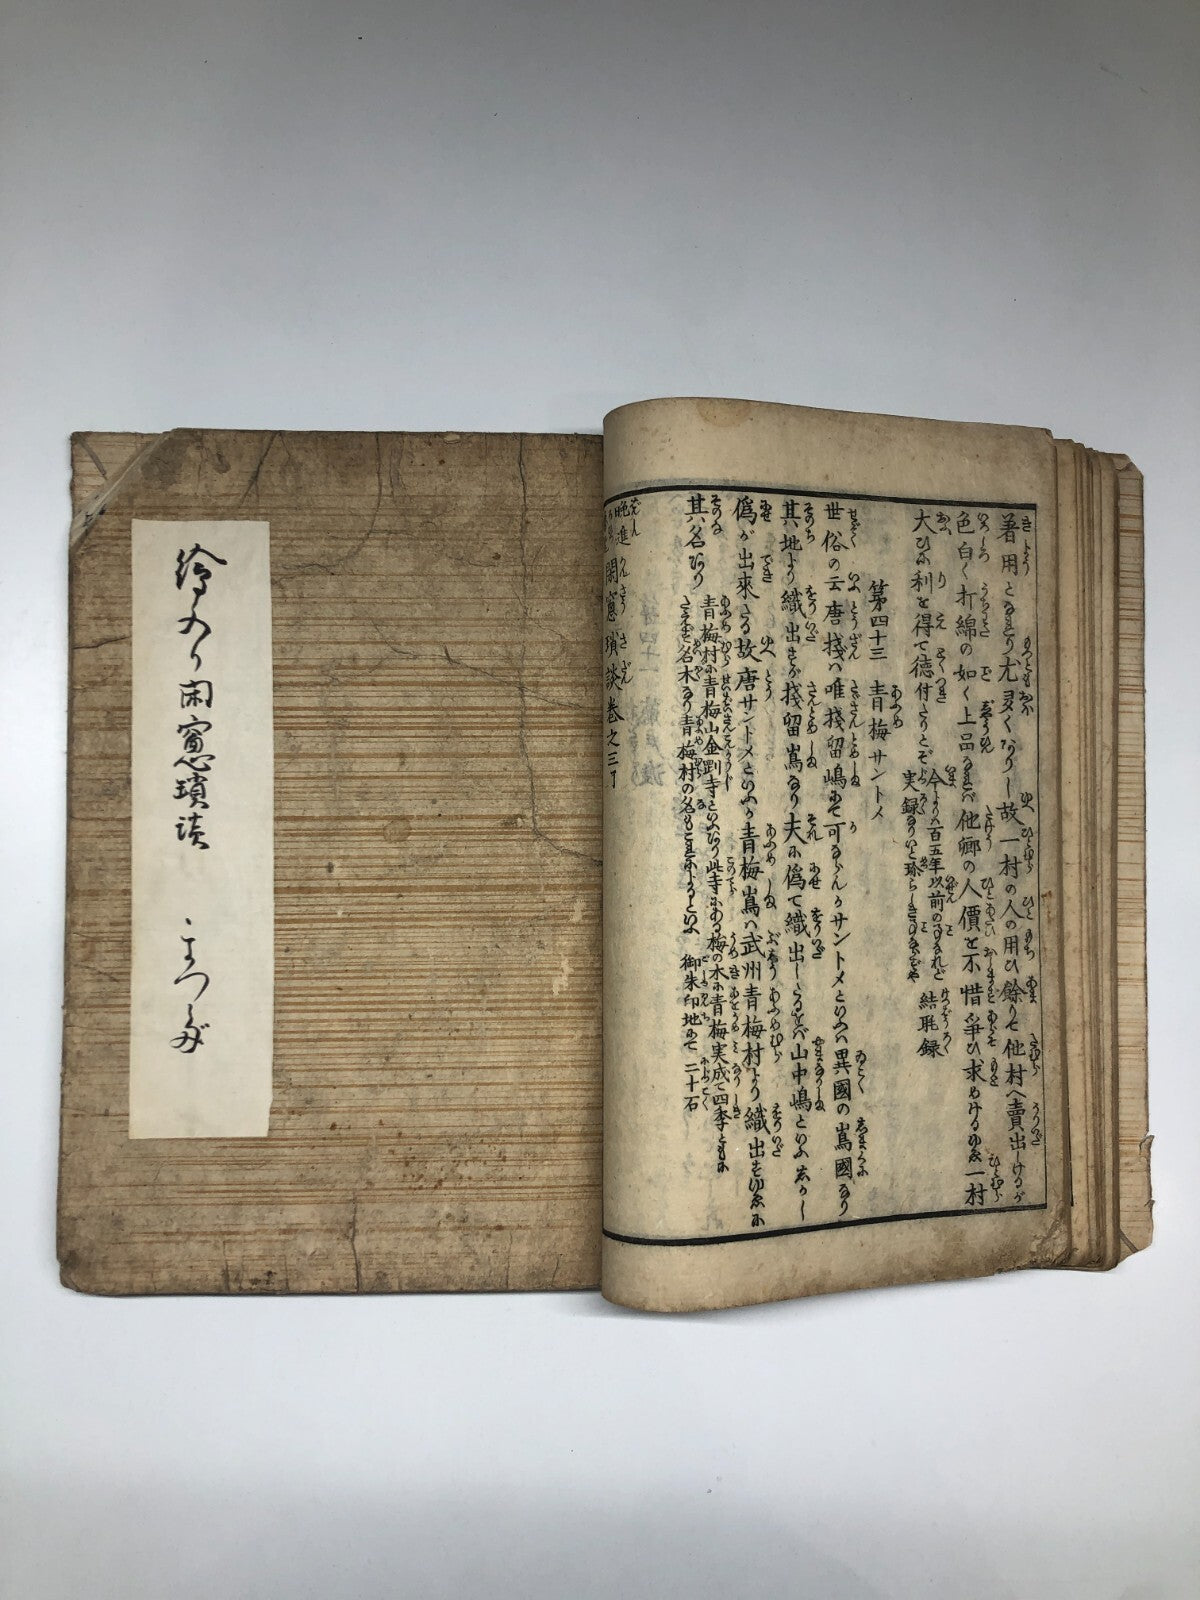 著用となれり尤多くありし故一村の人の用ひ餘りを他村へ賣出しけるが
色白く打綿の如く上品なれバ他郷の人價を不惜爭ひ求めけるゆゑ一村
大ひに利を得て徳付たりとぞ
今より八百五年以前の
実録なり
結毦録
第四十三 青梅サントメ
世俗の云唐棧ハ唯棧留嶋にて可ならんかサントメといふハ異國の嶌國なり
其地より織出すが棧留嶌なり夫に偽て織出したるをバ山中嶋といふ
偽が出來たる故唐サントメといふが青梅嶌ハ武州青梅村より織出すゆゑに
其名あり
青梅村に青梅山金剛寺といふあり此寺にある梅の木に青梅実成て四季ともに
名木なり青梅村の名もこれによるといふ 御朱印地にて二十石
閑窓瑣談巻之三了
繪入り閑窓瑣談